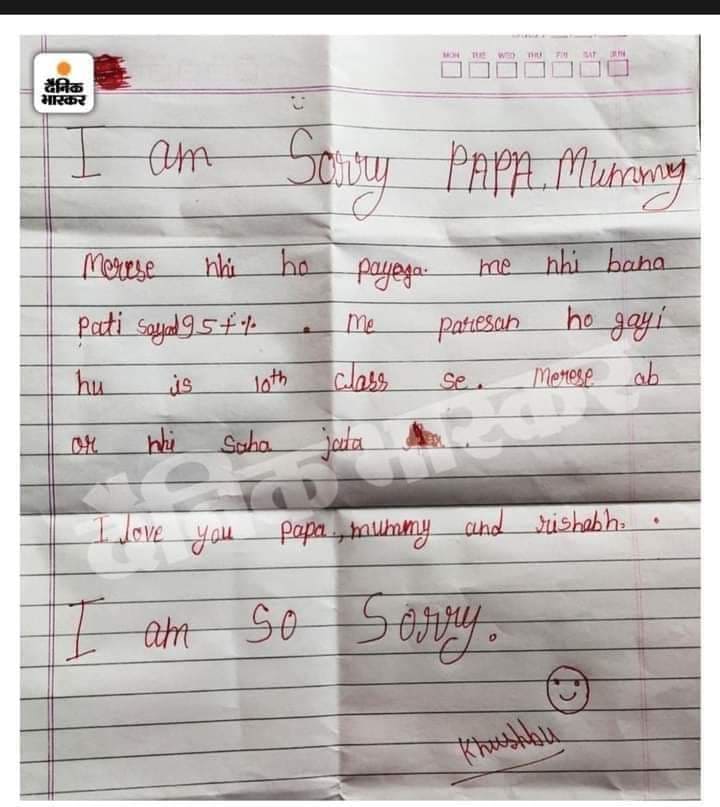 दैनिक
भास्कर
MON TUE WED THU FRI SAT SUN
I am Sorry PAPA, Mummy
Merese nhi ho payega. me nhi bana
pati sayad 95+% . me paresan ho gayi
hu is 10th class se. Merese ab
or nhi saha jata .
I love you papa, mummy and rishabh.
I am so Sorry.
Khushbu
दैनिक भास्कर